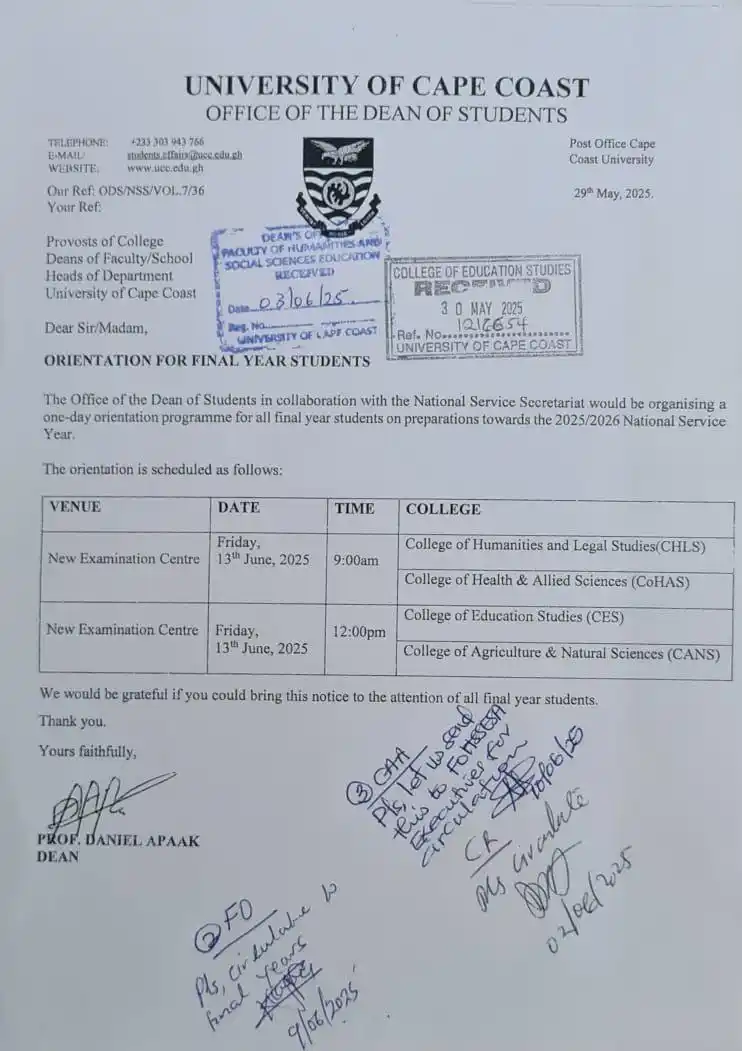 UNIVERSITY OF CAPE COAST
OFFICE OF THE DEAN OF STUDENTS
TELEPHONE: +233 303 943 766
E-MAIL: students.affairs@ucc.edu.gh
WEBSITE: www.ucc.edu.gh
Our Ref: ODS/NSS/VOL.7/36
Your Ref:
Post Office Cape
Coast University
29th May, 2025.
Provosts of College
Deans of Faculty/School
Heads of Department
University of Cape Coast
DEAN'S OF
FACULTY OF HUMANITIES AND
SOCIAL SCIENCES EDUCATION
RECEIVED
Date 03/06/25
Reg. No.
UNIVERSITY OF CAPE COAST
COLLEGE OF EDUCATION STUDIES
RECEIVED
30 MAY 2025
Ref. No. 1216654
UNIVERSITY OF CAPE COAST
Dear Sir/Madam,
ORIENTATION FOR FINAL YEAR STUDENTS
The Office of the Dean of Students in collaboration with the National Service Secretariat would be organising a
one-day orientation programme for all final year students on preparations towards the 2025/2026 National Service
Year.
The orientation is scheduled as follows:
VENUE DATE TIME COLLEGE
New Examination Centre Friday, 13th June, 2025 9:00am College of Humanities and Legal Studies(CHLS)
College of Health & Allied Sciences (CoHAS)
New Examination Centre Friday, 13th June, 2025 12:00pm College of Education Studies (CES)
College of Agriculture & Natural Sciences (CANS)
We would be grateful if you could bring this notice to the attention of all final year students.
Thank you.
Yours faithfully,
PROF. DANIEL APAAK
DEAN
③ CAA
Pls, let us send
this to FOHSSESA
Executives for
circulation
10/06/25
CR
Pls circulate
02/06/2025
② FO
Pls, circulate to
final years
9/06/2025